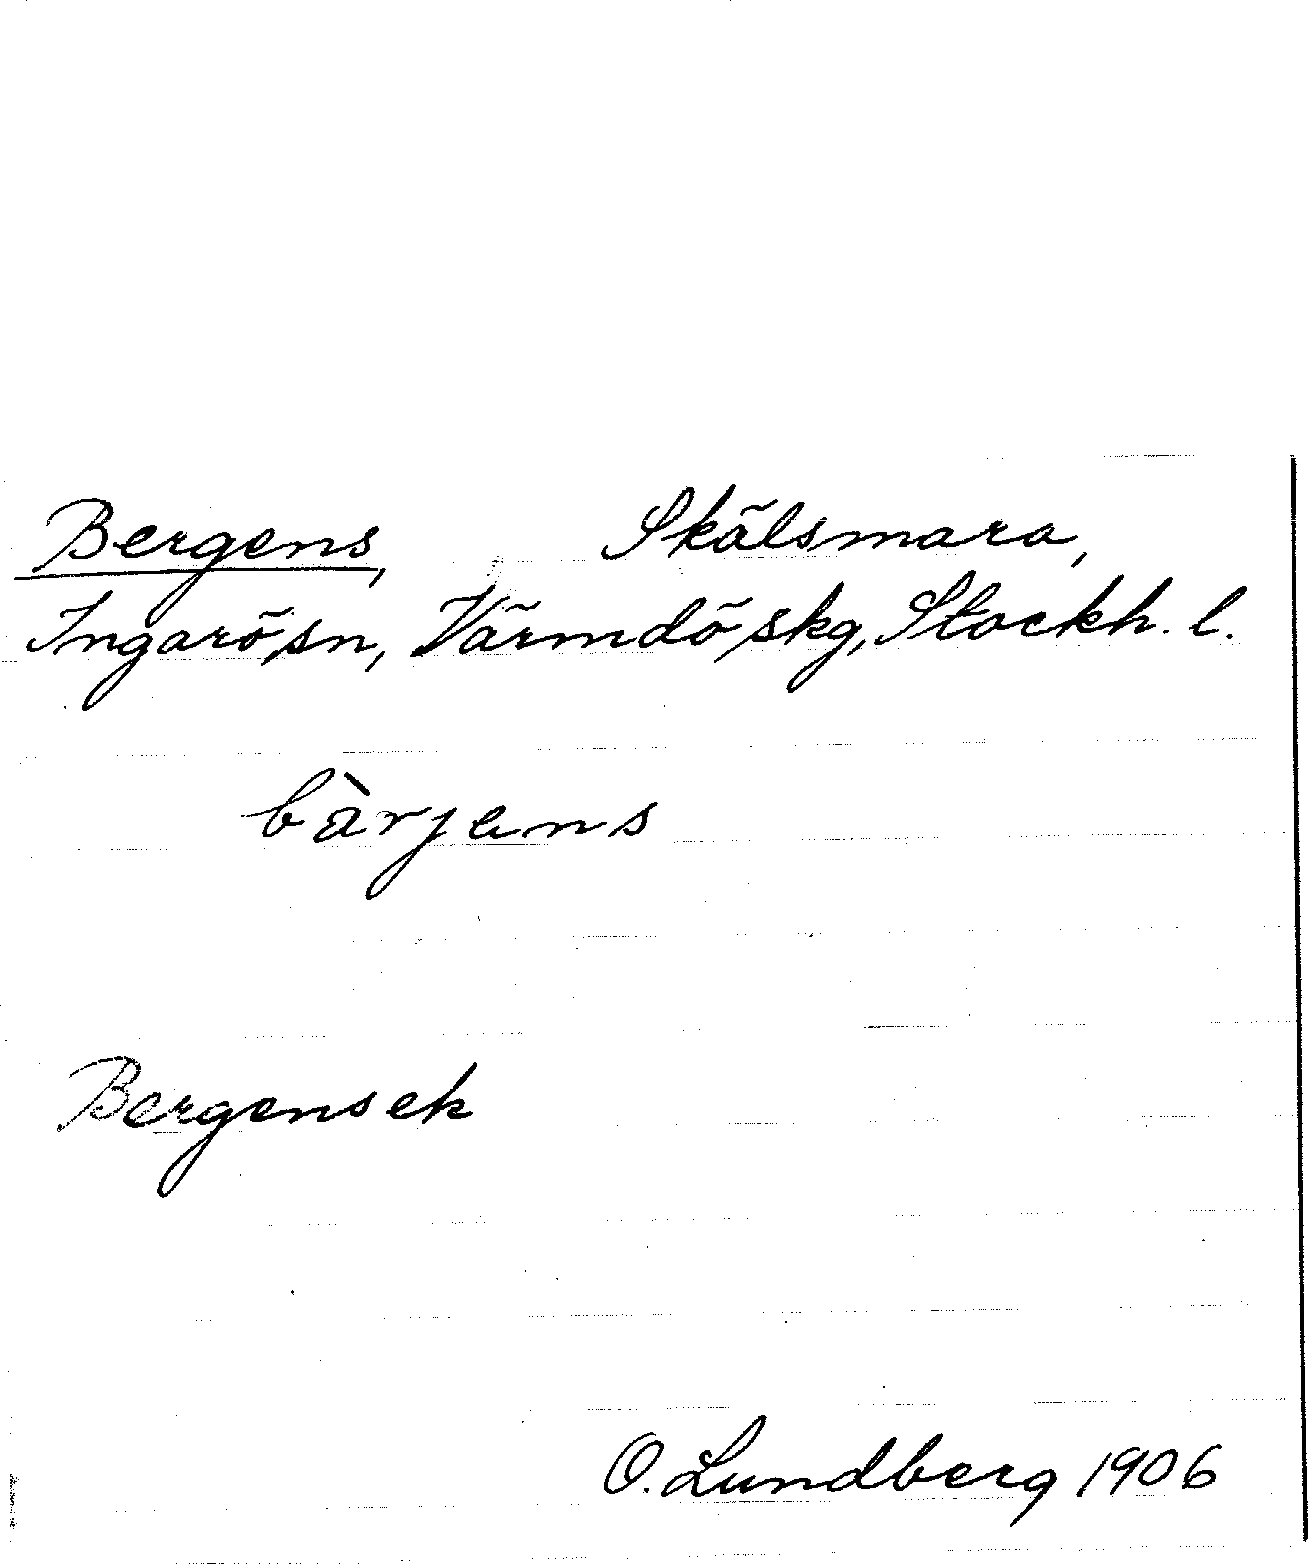 Bergens, Skälsmara,
Ingarö sn, Värmdö skg, Stockh. l.
bàrjens
Bergens ek
O. Lundberg 1906